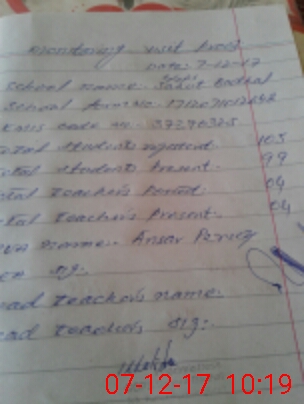 Monitoring visit proof
Date: 7-12-17
School name: Sahot Badhal
School
EMIS code no. 37290325
total students registered. 105
total students present. 99
total teachers posted: 04
total teachers present. 04
name:- Ansar Pervez
sig:
ead teacher's name:
ead teachers sig:.
07-12-17 10:19